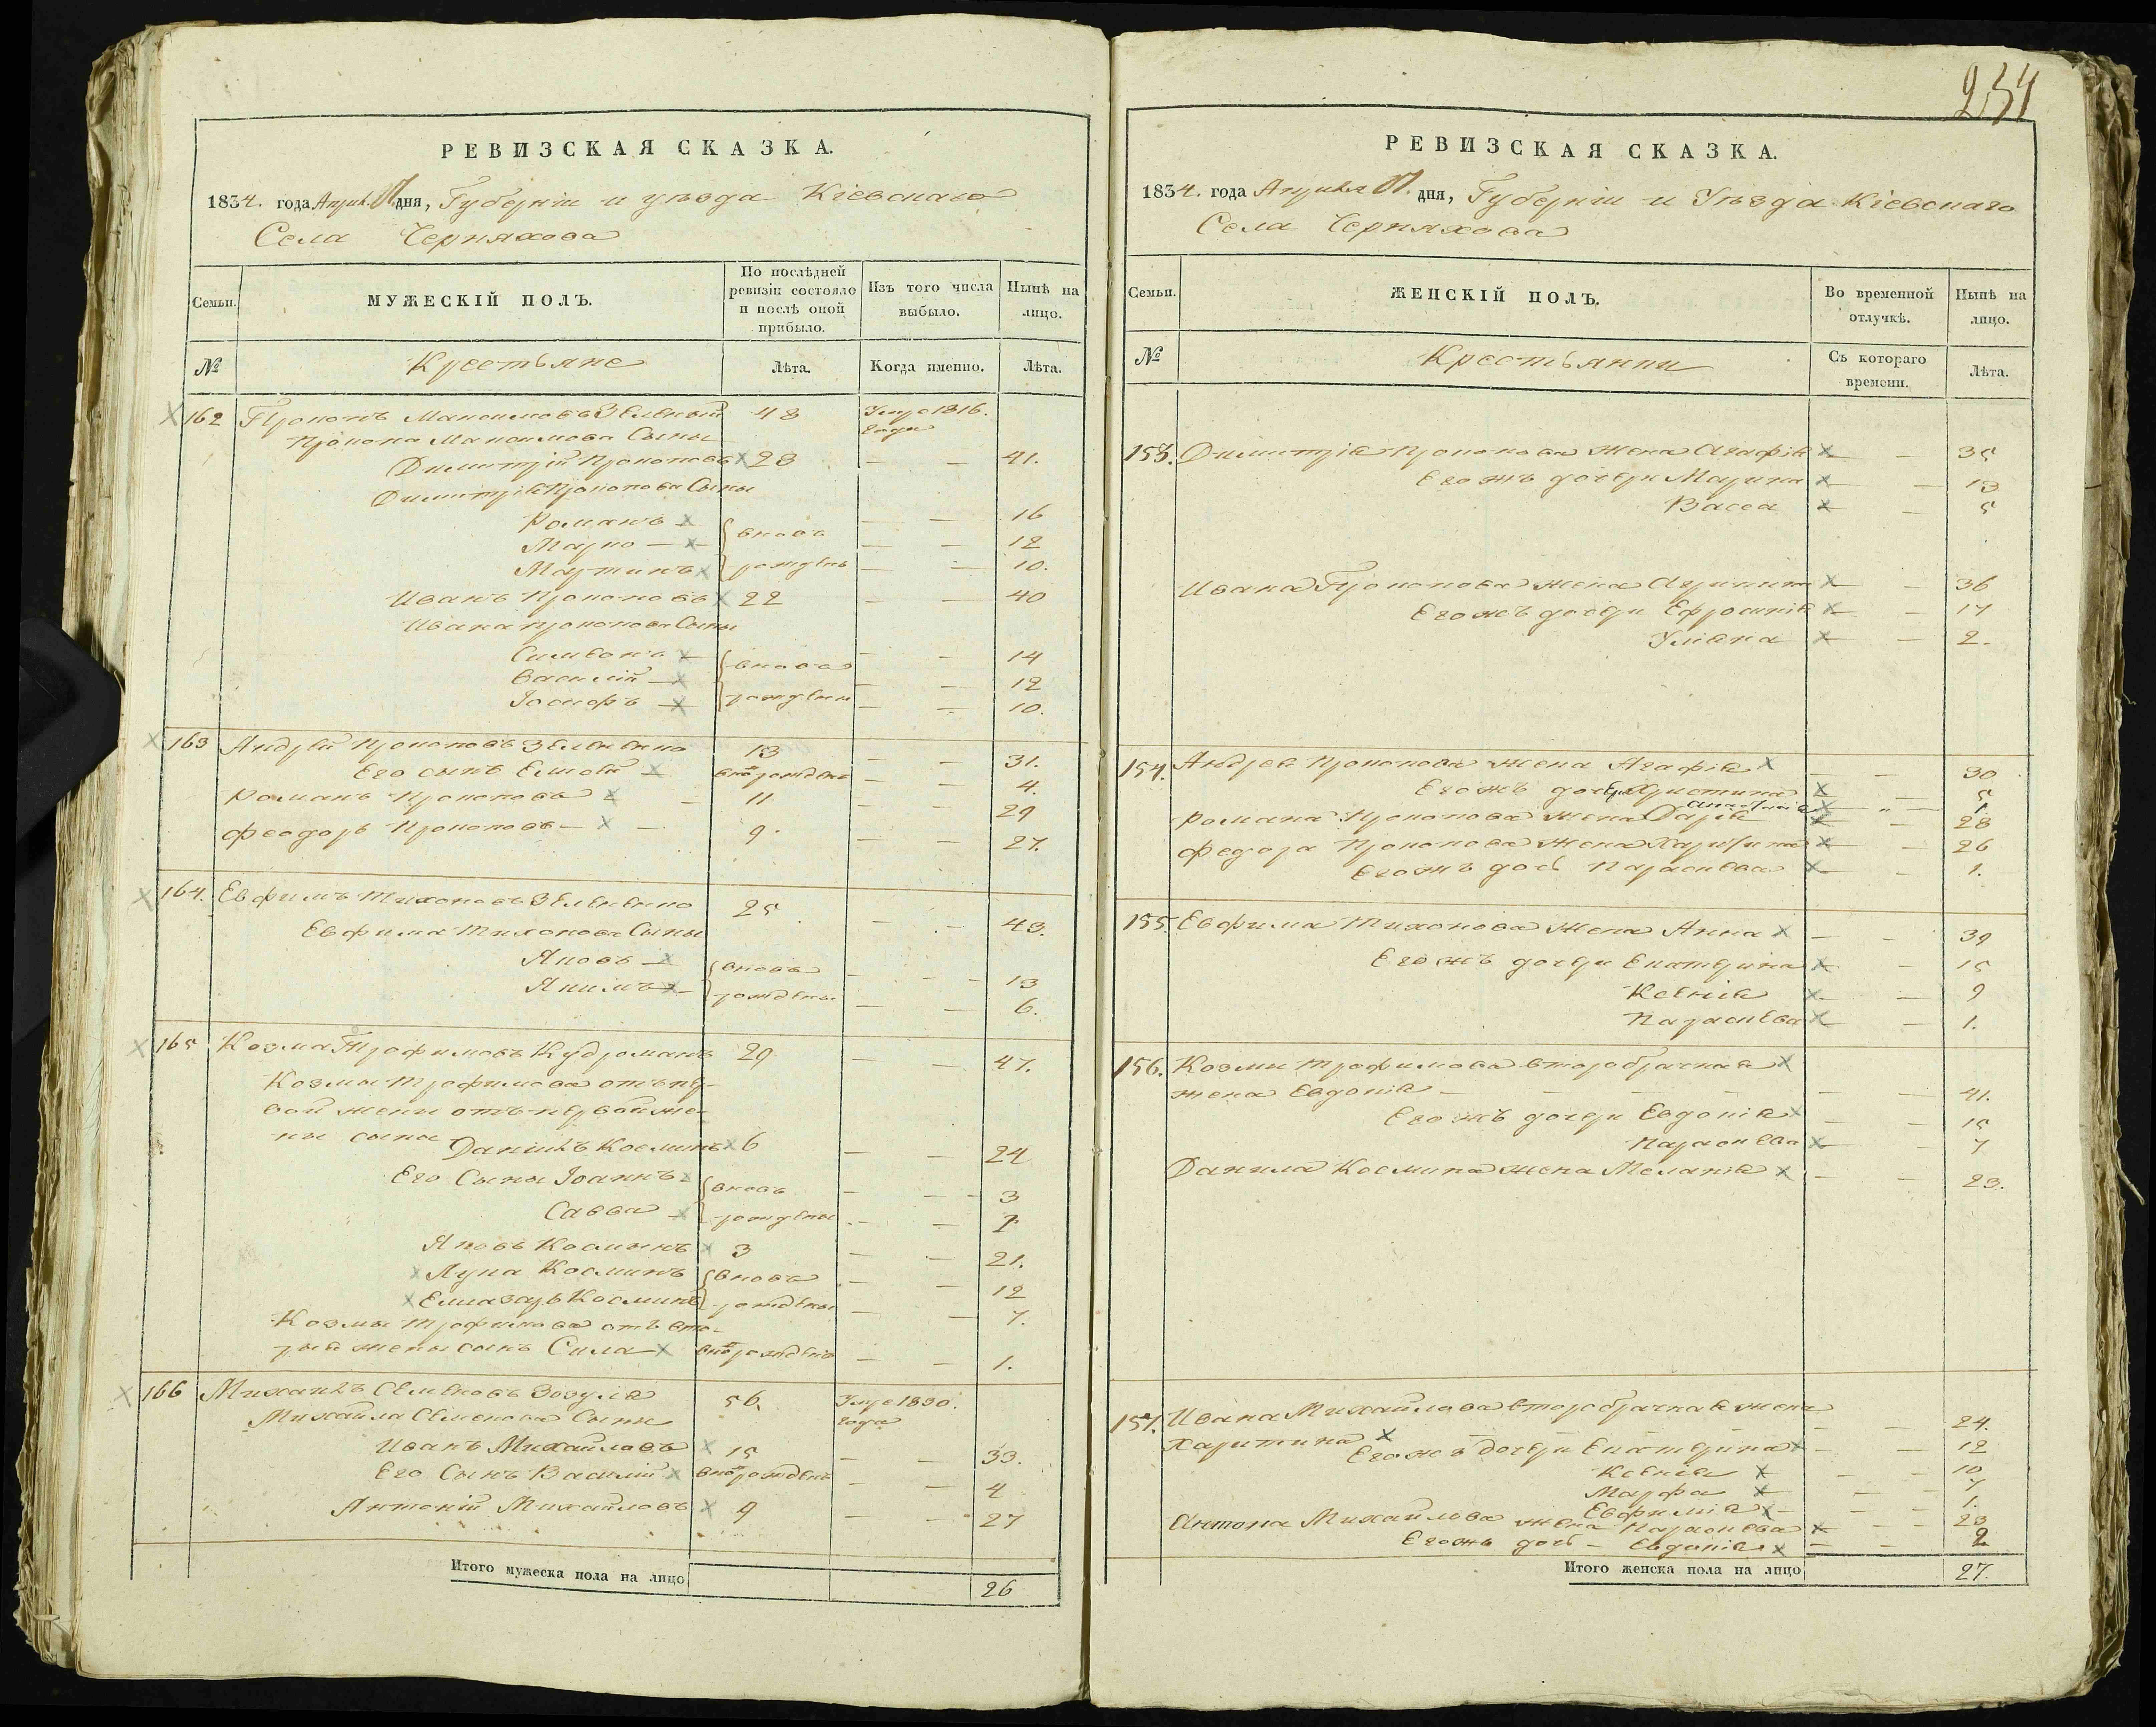 РЕВИЗСКАЯ СКАЗКА.
1834. года Априля 17. дня, Губерніи и уѣзда Кіевскаго
Села Черняхова
Семьи.
МУЖЕСКІЙ ПОЛЪ.
По послѣдней ревизіи состояло и послѣ оной прибыло.
Изъ того числа выбыло.
Нынѣ на лицо.
№
Крестьяне
Лѣта.
Когда именно.
Лѣта.
162 Прокопъ Максимовъ Зеленый 48 Умре 1816. года
Прокопа Максимова Сыны
Димитрій Прокоповъ 23 — — 41.
Димитрія Прокопова Сыны
Романъ — — 16
Марко — вновь — — 12
Мартинъ рождены — — 10.
Иванъ Прокоповъ 22 — — 40
Ивана Прокопова Сыны
Симеонъ — — 14
Василій — вновь — — 12
Іосифъ — рождены — — 10.
163 Андрей Прокоповъ Зеленько 13 — — 31.
Его сынъ Елисей вновь рожденъ — — 4.
Романъ Прокоповъ — 11 — — 29
Феодоръ Прокоповъ — — 9. — — 27.
164. Евфимъ Тихоновъ Зеленько 25 — — 43.
Евфима Тихонова Сыны
Яковъ — вновь — — 13
Якимъ — рождены — — 6.
165 Козма Трофимовъ Кудроманъ 29 — — 47.
Козмы Трофимова отъ пер-
вой жены отъ первой же-
ны сыны Даніилъ Косминъ 6 — — 24
Его Сыны Іоаннъ вновь — — 3
Савва — рождены — — 1.
Яковъ Косминъ 3 — — 21.
Лука Косминъ вновь — — 12
Елиазаръ Косминъ рождены — — 7.
Козмы Трофимова отъ вто-
рыя жены сынъ Сила — вновь рожденъ — — 1.
166 Михаилъ Семеновъ Зозуля 56. Умре 1830. года
Михаила Семенова Сыны
Иванъ Михайловъ 15 — — 33.
Его Сынъ Василій вновь рожденъ — — 4
Антоній Михайловъ 9 — — 27
Итого мужеска пола на лицо 26
254
РЕВИЗСКАЯ СКАЗКА.
1834. года Априля 17. дня, Губерніи и Уѣзда Кіевскаго
Села Черняхова
Семьи.
ЖЕНСКІЙ ПОЛЪ.
Во временной отлучкѣ.
Нынѣ на лицо.
№
Крестьянки
Съ котораго времени.
Лѣта.
153. Димитрія Прокопова жена Агафія — — 35
Его жъ дочери Марина — — 13
Васса — — 5
Ивана Прокопова жена — — 36
Его жъ дочери Ефросинія — — 17
Уліяна — — 2.
154. Андрея Прокопова жена Агафія — — 30
Его жъ дочери Христина — — 5
Анастасія — — 1.
Романа Прокопова жена Дарія — — 28
Федора Прокопова жена Харитина — — 26
Его жъ дочь Параскева — — 1.
155. Евфима Тихонова жена Анна — — 39
Его жъ дочери Екатерина — — 15
Ксенія — — 9
Параскева — — 1.
156. Козмы Трофимова второбрачная
жена Евдокія — — — 41.
Его жъ дочери Евдокія — — 15
Параскева — — 7
Данила Космина жена Меланія — — 23.
157. Ивана Михайлова второбрачная жена
Харитина — — 24.
Его жъ дочери Екатерина — — 12
Ксенія — — 10
Марфа — — 7
Евфимія — — 1.
Антона Михайлова жена Параскева — — 23
Его жъ дочь — Евдокія — — 2
Итого женска пола на лицо 27.